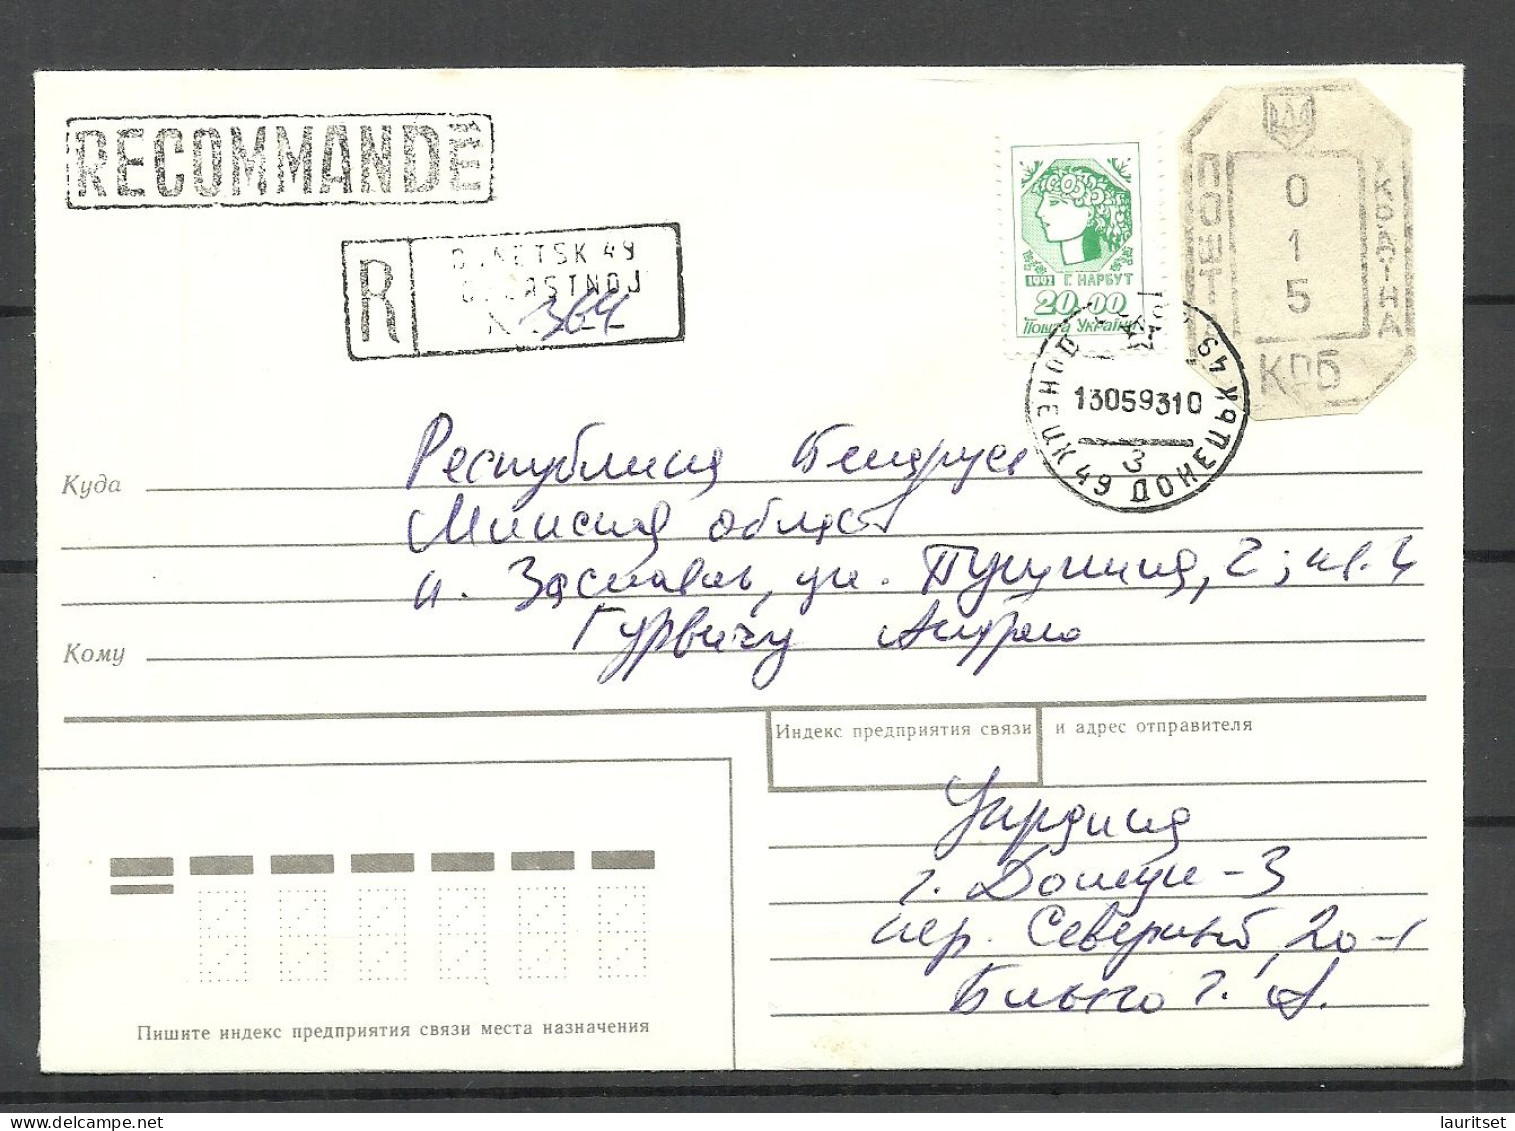 RECOMMANDE
R
DONETSK 49
OBLASTNOJ
364
1992 Г. НАРБУТ
20.00
Пошта України
ПОШТА
УКРАЇНА
015
КРБ
ДОНЕЦЬК 49 ДОНЕЦЬК 49
13059310
3
Куда Республика Беларусь
Минская область
г. Заславль, ул. Пушкина, 2; кв. 4
Кому Гурвичу Андрею
Индекс предприятия связи и адрес отправителя
Украина
г. Донецк-3
пер. Северный, 20-1
Г. А.
Пишите индекс предприятия связи места назначения
lauritset